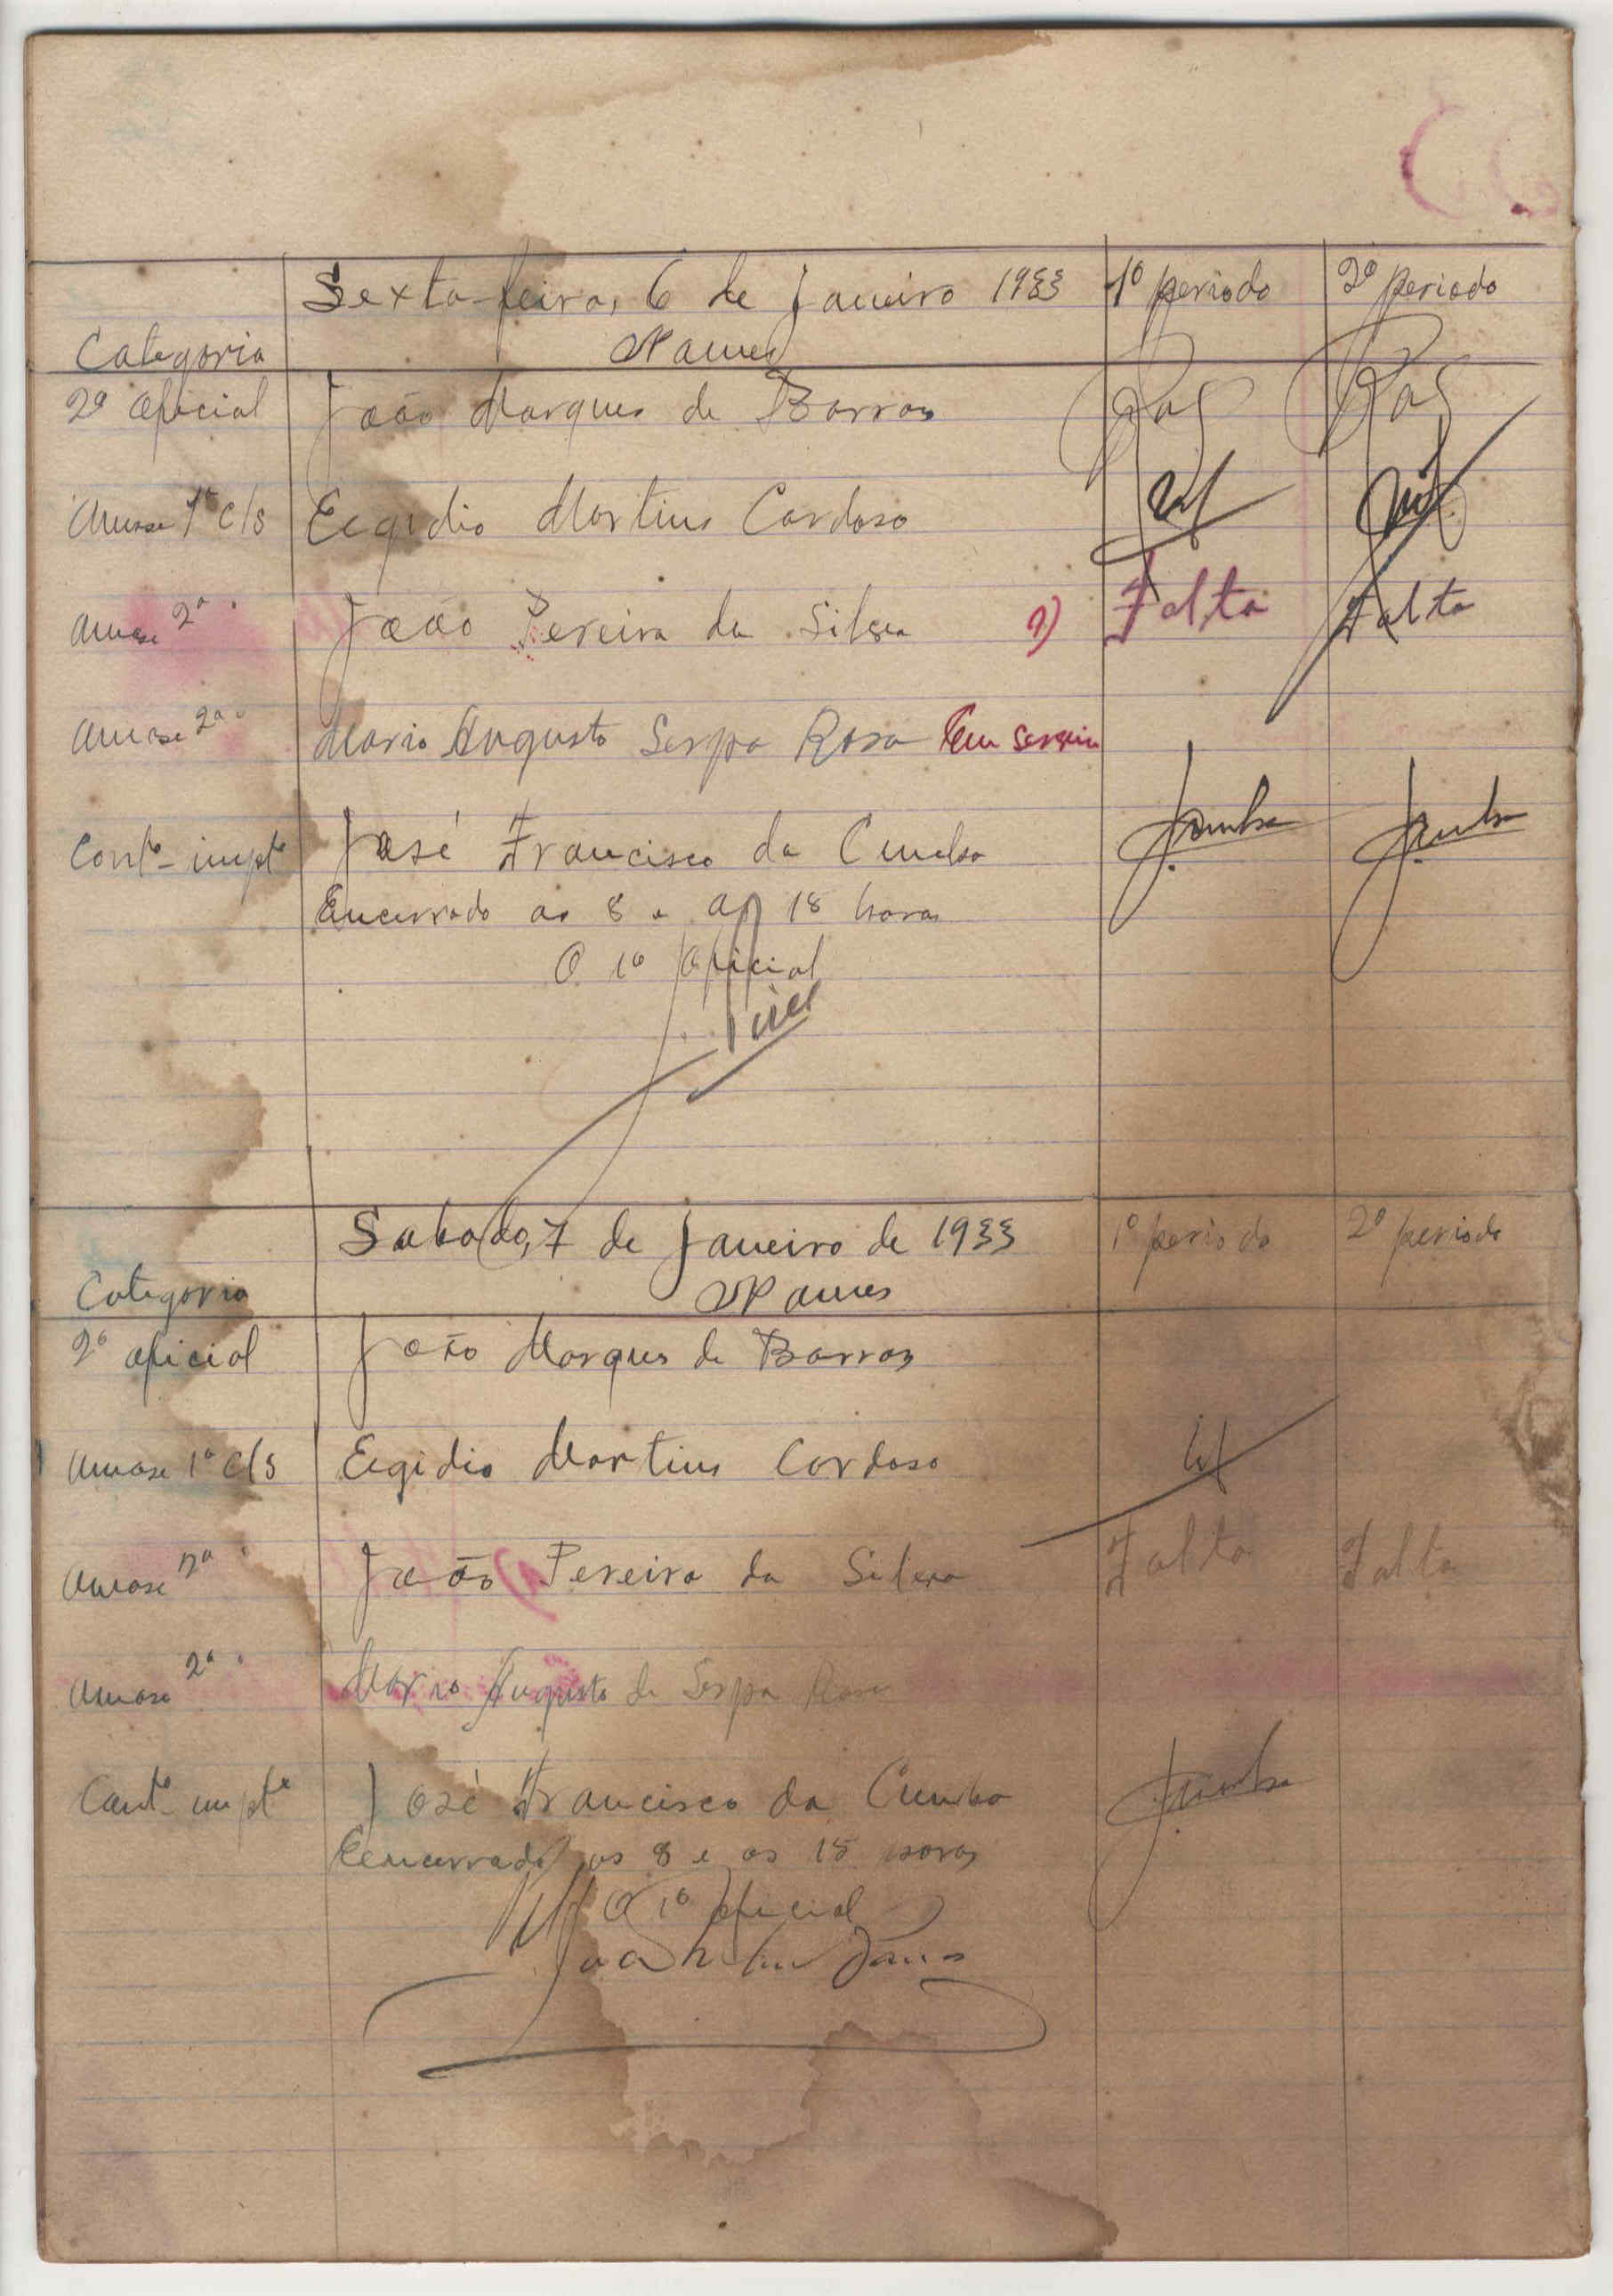 Sexta-feira, 6 de Janeiro 1933 1º periodo 2º periodo
Categoria Nomes
2º oficial João Marques de Barros
1ª cls Eegidio Martins Cardoso
2ª " João Pereira da Silva Falta Falta
2ª " Mario Augusto Serpa Rosa Sem serviço
Contº impte José Francisco da Cunha
Encerrado as 8 e as 18 horas
O 1º oficial
Sabado, 7 de Janeiro de 1933 1º periodo 2º periodo
Categoria Nomes
2º oficial João Marques de Barros
1ª cls Eegidio Martins Cardoso
2ª " João Pereira da Silva Falta Falta
2ª " Mario Augusto de Serpa Rosa
Contº impte José Francisco da Cunha
Eencerrado as 8 e as 18 horas
O 1º oficial